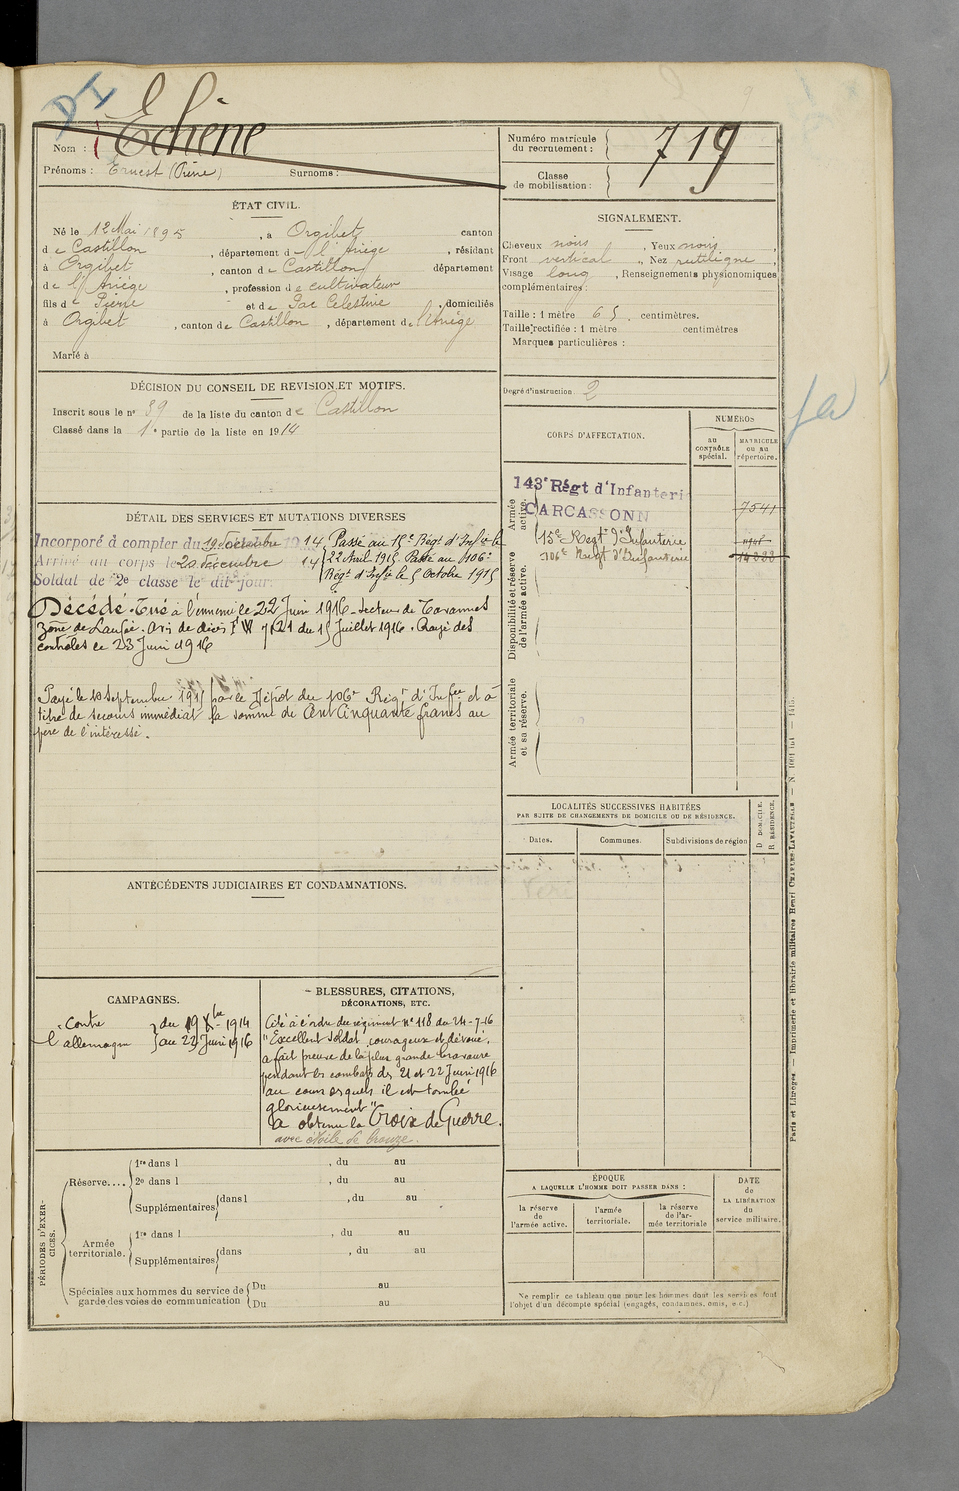 DI
Nom : Echène
Prénoms : Ernest (Pierre) Surnoms :
Numéro matricule du recrutement : 719
Classe de mobilisation :
ÉTAT CIVIL.
Né le 12 Mai 1895, à Orgibet canton
de Castillon, département de l'Ariège, résidant
à Orgibet, canton de Castillon département
de l'Ariège, profession de cultivateur
fils de Pierre et de Pac Celestine, domiciliés
à Orgibet, canton de Castillon, département de l'Ariège
Marié à
SIGNALEMENT.
Cheveux noirs, Yeux noirs,
Front vertical, Nez rectiligne,
Visage long, Renseignements physionomiques
complémentaires :
Taille : 1 mètre 65 centimètres.
Taille rectifiée : 1 mètre centimètres
Marques particulières :
Degré d'instruction 2
DÉCISION DU CONSEIL DE REVISION ET MOTIFS.
Inscrit sous le n° 39 de la liste du canton de Castillon
Classé dans la 1e partie de la liste en 1914
CORPS D'AFFECTATION.
NUMÉROS
au CONTRÔLE spécial.
MATRICULE ou au répertoire.
Armée active.
143e Régt d'Infanterie
CARCASSONN
7541
15e Regt d'Infanterie
106e Regt d'Infanterie
Disponibilité et réserve de l'armée active.
Armée territoriale et sa réserve.
DÉTAIL DES SERVICES ET MUTATIONS DIVERSES
Incorporé à compter du 19 Décembre 1914. Passé au 15e Régt d'Inf ie le
Arrivé au corps le 20 Décembre 14 22 Avril 1915. Passé au 106e
Soldat de 2e classe le dit jour. Régt d'Inf ie le 5 Octobre 1915
Décédé. Tué à l'ennemi le 22 Juin 1916 - Secteur de Tavannes
zone de Laufée. Avis de décès du 15 Juillet 1916. Rayé des
contrôles le 23 Juin 1916
Payé le 10 Septembre 191 par le Dépôt du 106e Régt d'Inf ie et à
titre de secours immédiat la somme de Cent Cinquante francs au
père de l'intéressé.
LOCALITÉS SUCCESSIVES HABITÉES
PAR SUITE DE CHANGEMENTS DE DOMICILE OU DE RÉSIDENCE.
Dates. Communes. Subdivisions de région
D. DOMICILE. R. RÉSIDENCE.
ANTÉCÉDENTS JUDICIAIRES ET CONDAMNATIONS.
CAMPAGNES.
Contre du 19 Xbre 1914
l'allemagne au 22 Juin 1916
BLESSURES, CITATIONS,
DÉCORATIONS, ETC.
Cité à l'ordre du régiment n° 118 du 24-7-16
"Excellent soldat, courageux et dévoué,
a fait preuve de la plus grande bravoure
pendant les combats des 21 et 22 Juin 1916
au cours desquels il est tombé
glorieusement"
a obtenu la Croix de Guerre.
avec étoile de bronze.
PÉRIODES D'EXERCICES.
Réserve....
1re dans l , du au
2e dans l , du au
Supplémentaires dans l , du au
Armée territoriale.
1re dans l , du au
Supplémentaires dans , du au
Spéciales aux hommes du service de garde des voies de communication
Du au
Du au
ÉPOQUE
A LAQUELLE L'HOMME DOIT PASSER DANS :
la réserve de l'armée active.
l'armée territoriale.
la réserve de l'armée territoriale
DATE de LA LIBÉRATION du service militaire.
Ne remplir ce tableau que pour les hommes dont les services font
l'objet d'un décompte spécial (engagés, condamnés, omis, etc.)
Paris et Limoges. — Imprimerie et librairie militaires Henri CHARLES-LAVAUZELLE